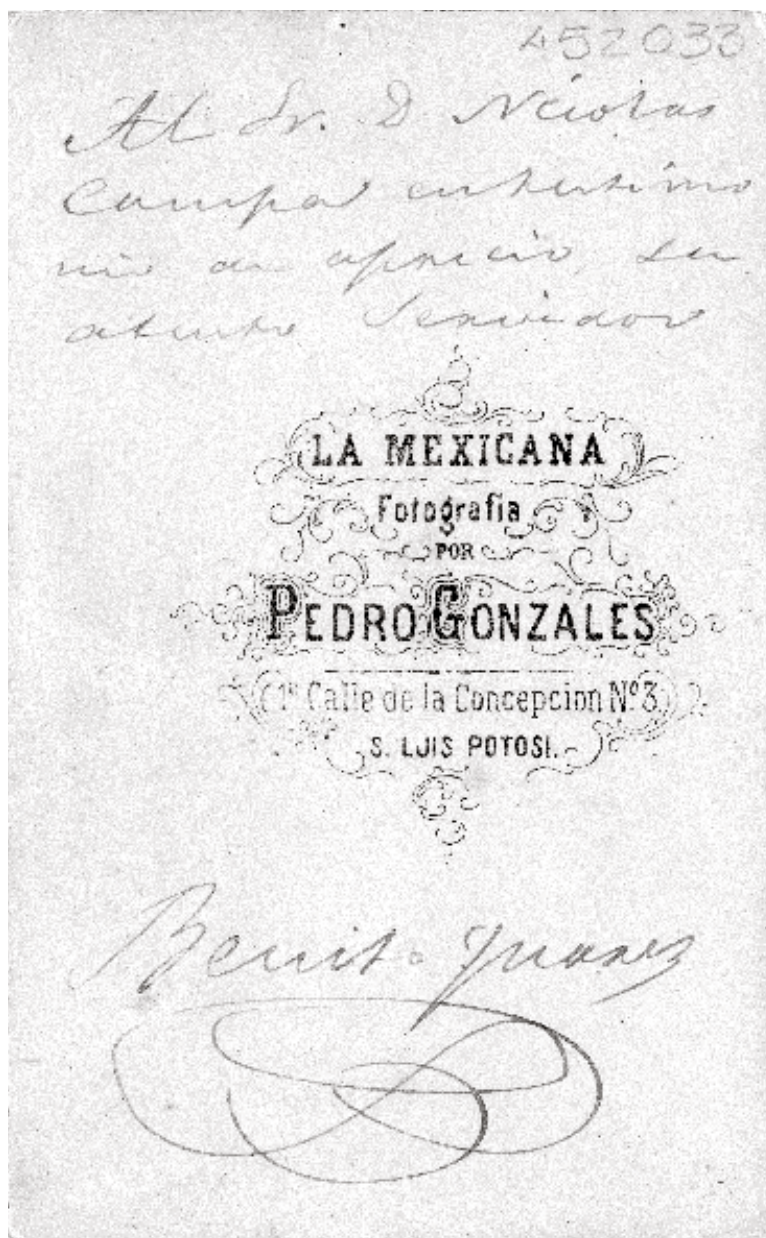 452033
Al Sr. D Nicolas
Campa en testimo
nio de aprecio, su
atento Servidor
LA MEXICANA
Fotografia
POR
PEDRO GONZALES
1ª Calle de la Concepcion Nº 3.
S. LUIS POTOSI.
Benito Juarez